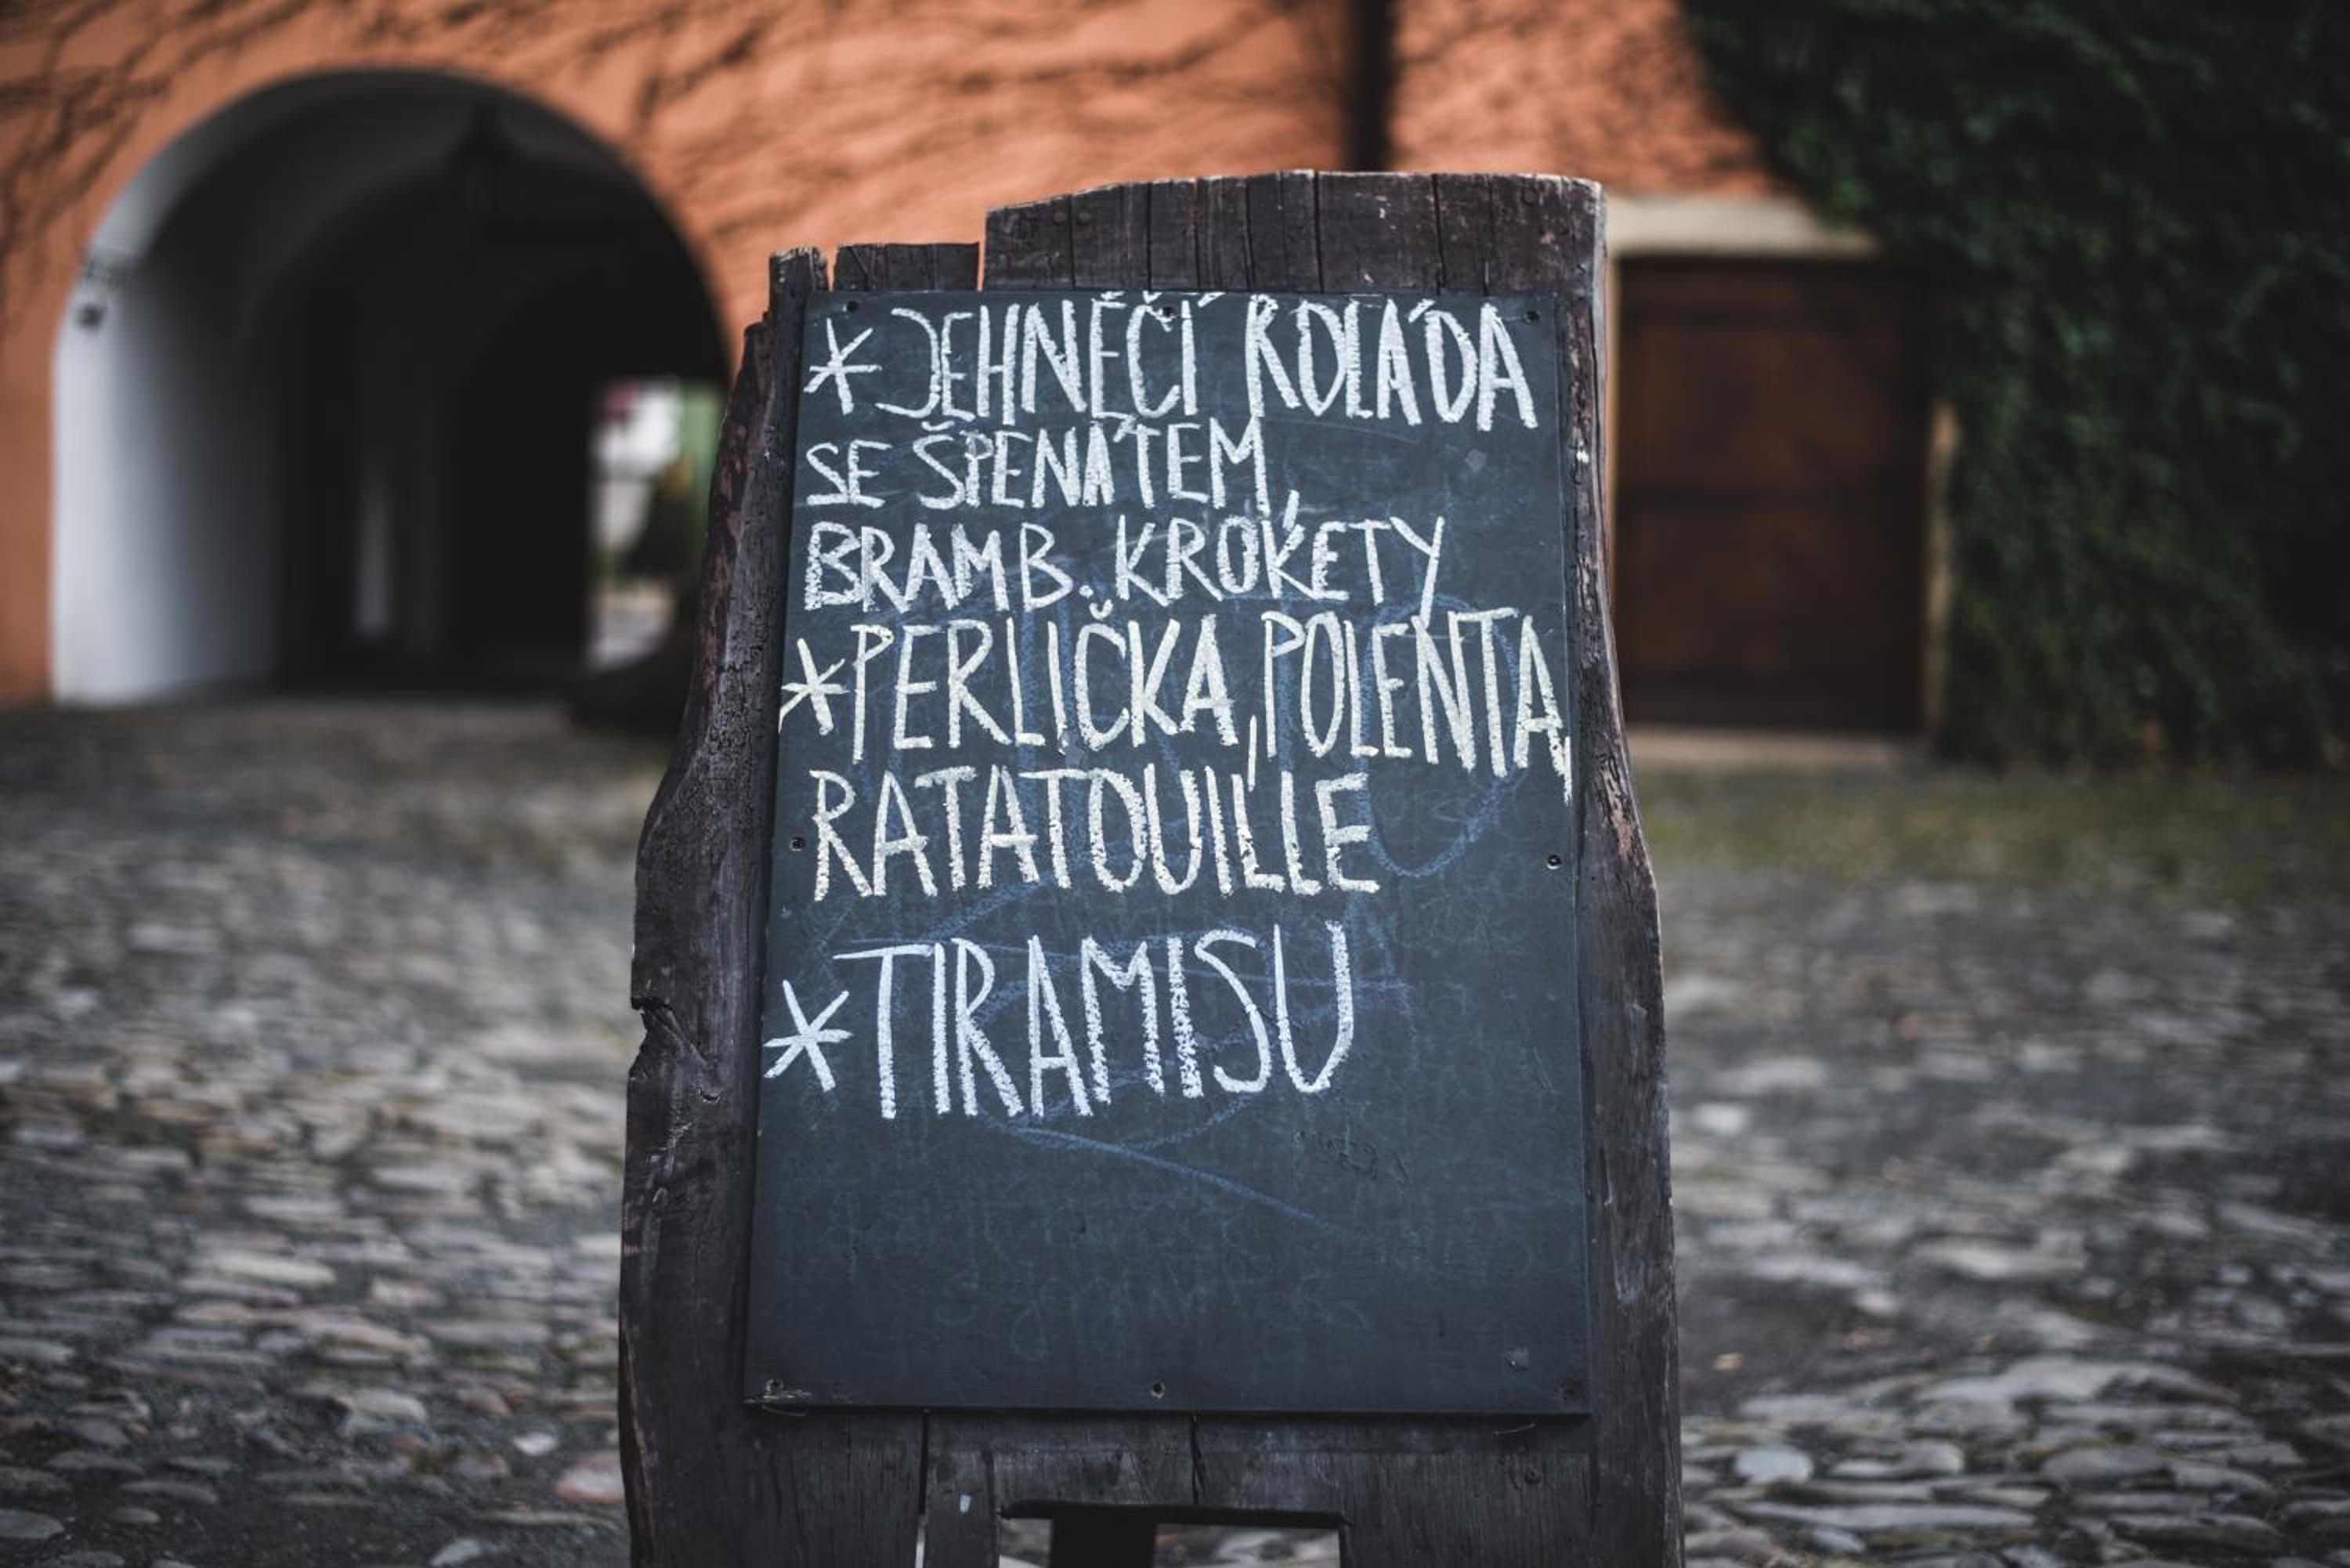 *JEHNĚČÍ ROLÁDA
SE ŠPENÁTEM,
BRAMB. KROKETY
*PERLIČKA, POLENTA,
RATATOUILLE
*TIRAMISU